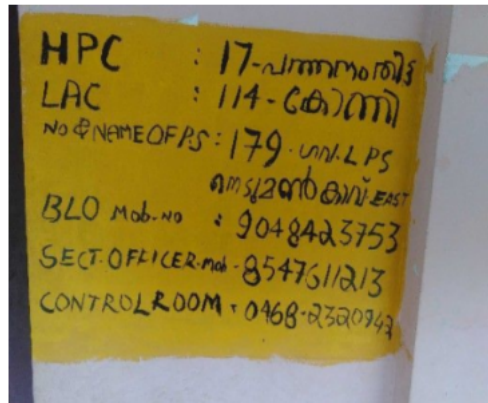 HPC : 17-പത്തനംതിട്ട
LAC : 114-കോന്നി
NO & NAME OF P.S : 179-ഗവ. L P S
നെടുമൺകാവ് EAST
BLO Mob-NO : 9048423753
SECT.OFFICER-Mob-8547611213
CONTROL ROOM : 0468-2320942